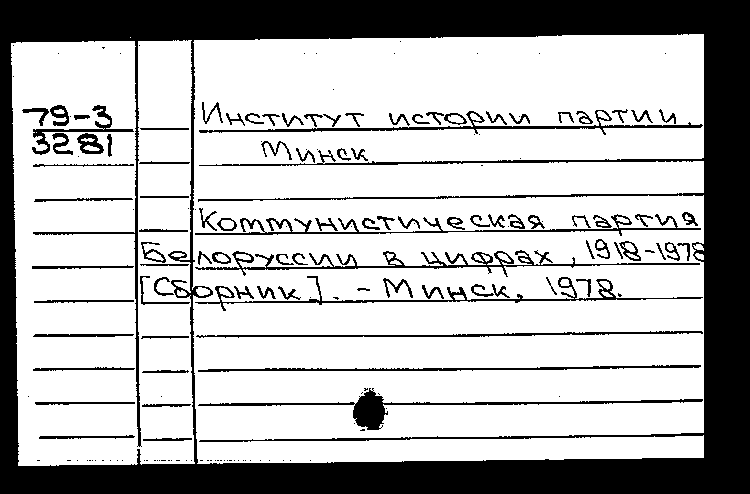 79-3
3281
Институт истории партии.
Минск.
Коммунистическая партия
Белоруссии в цифрах, 1918-1978
[Сборник]. - Минск, 1978.